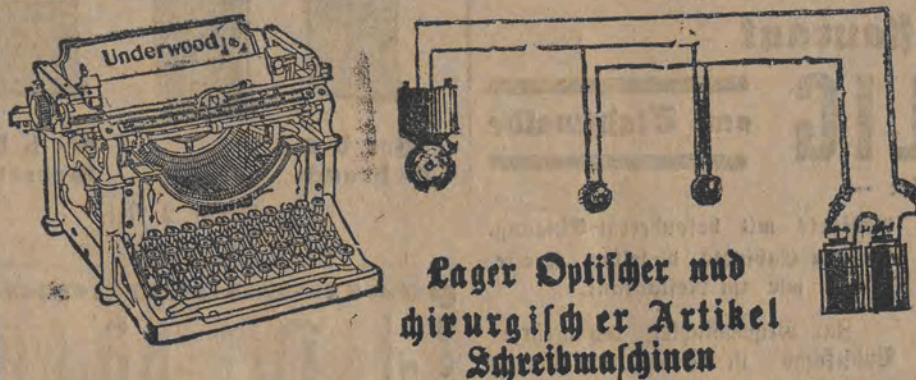 Underwood
Lager Optiſcher nud
chirurgiſch er Artikel
Schreibmaſchinen